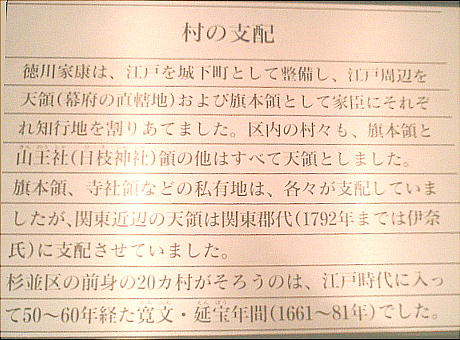 村の支配
徳川家康は、江戸を城下町として整備し、江戸周辺を
天領(幕府の直轄地)および旗本領として家臣にそれぞ
れ知行地を割りあてました。区内の村々も、旗本領と
山王社(日枝神社)領の他はすべて天領としました。
旗本領、寺社領などの私有地は、各々が支配していま
したが、関東近辺の天領は関東郡代(1792年までは伊奈
氏)に支配させていました。
杉並区の前身の20カ村がそろうのは、江戸時代に入っ
て50〜60年経た寛文・延宝年間(1661〜81年)でした。